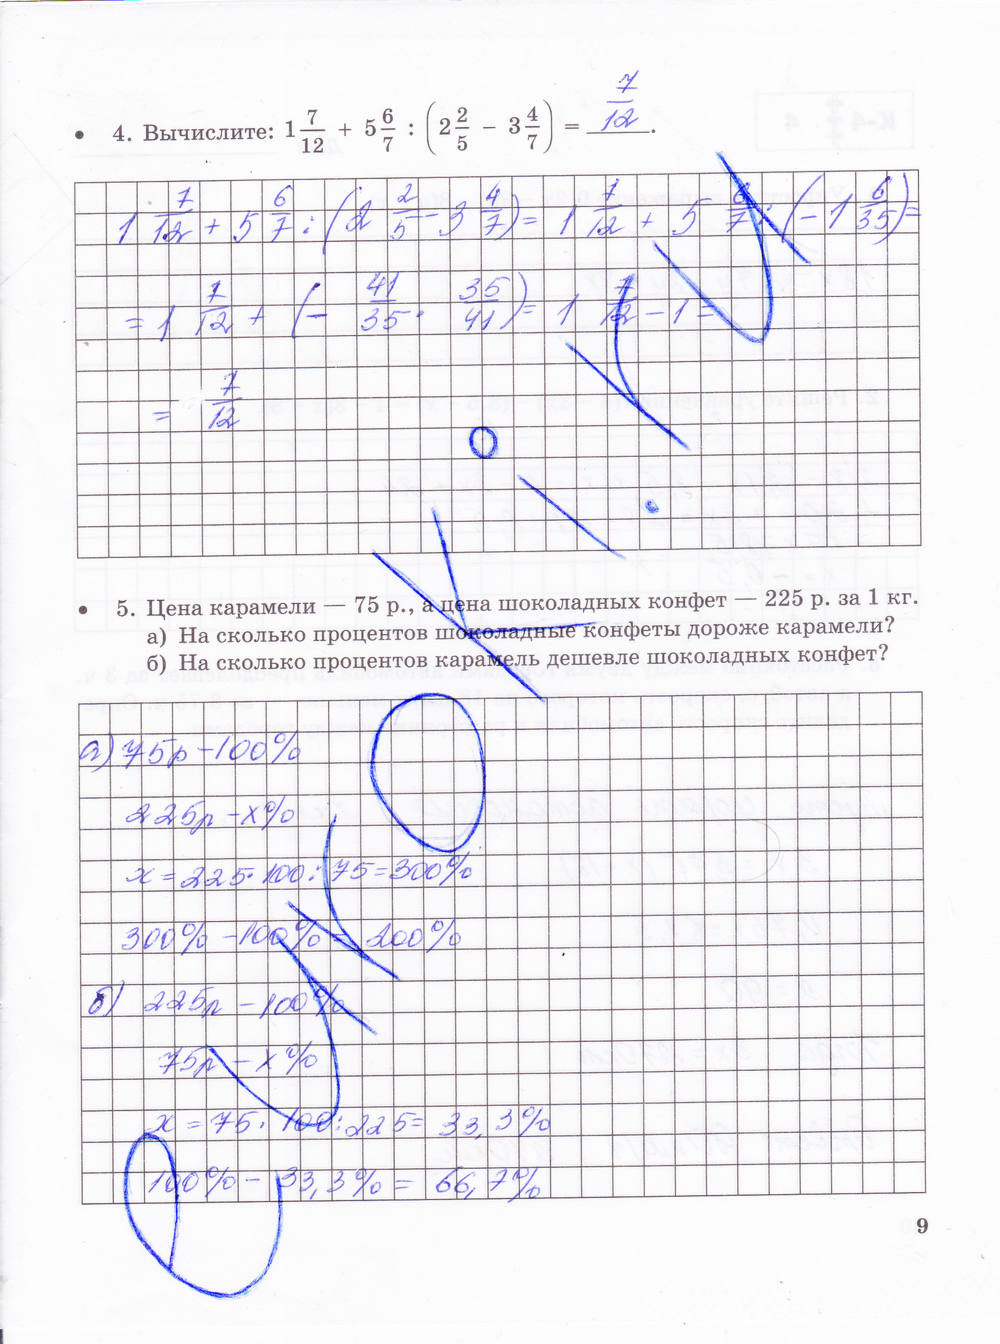 • 4. Вычислите: 1 7/12 + 5 6/7 : (2 2/5 − 3 4/7) = 7/12.
1 7/12 + 5 6/7 : (2 2/5 − 3 4/7) = 1 7/12 + 5 6/7 : (− 1 6/35) =
= 1 7/12 + (− 41/35 · 35/41) = 1 7/12 − 1 =
= 7/12
• 5. Цена карамели — 75 р., а цена шоколадных конфет — 225 р. за 1 кг.
а) На сколько процентов шоколадные конфеты дороже карамели?
б) На сколько процентов карамель дешевле шоколадных конфет?
а) 75р − 100%
225р − x%
x = 225 · 100 : 75 = 300%
300% − 100% = 200%
б) 225р − 100%
75р − x%
x = 75 · 100 : 225 = 33,3%
100% − 33,3% = 66,7%
9